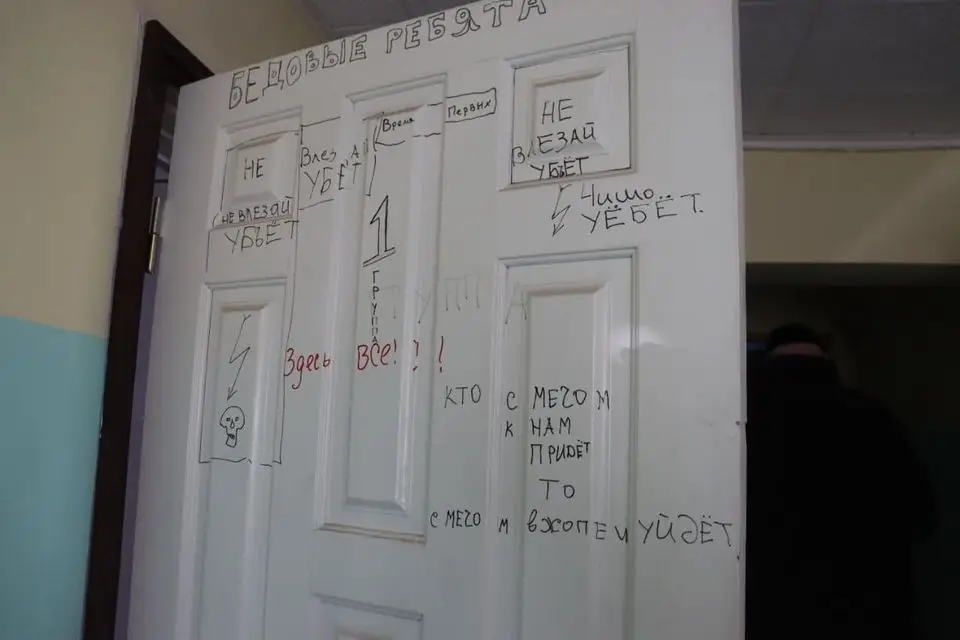 БЕДОВЫЕ РЕБЯТА
НЕ
НЕ ВЛЕЗАЙ
УБЪЁТ
Влезай
УБЁТ
Время
Первых
1
ГРУППА
ГРУППА
НЕ
ВЛЕЗАЙ
УБЪЁТ
Чимо
УЁБЁТ.
Здесь ВСЕ!!!
КТО С МЕЧОМ
К НАМ
ПРИДЁТ
ТО
С МЕЧОМ В ЖОПЕ И УЙДЁТ